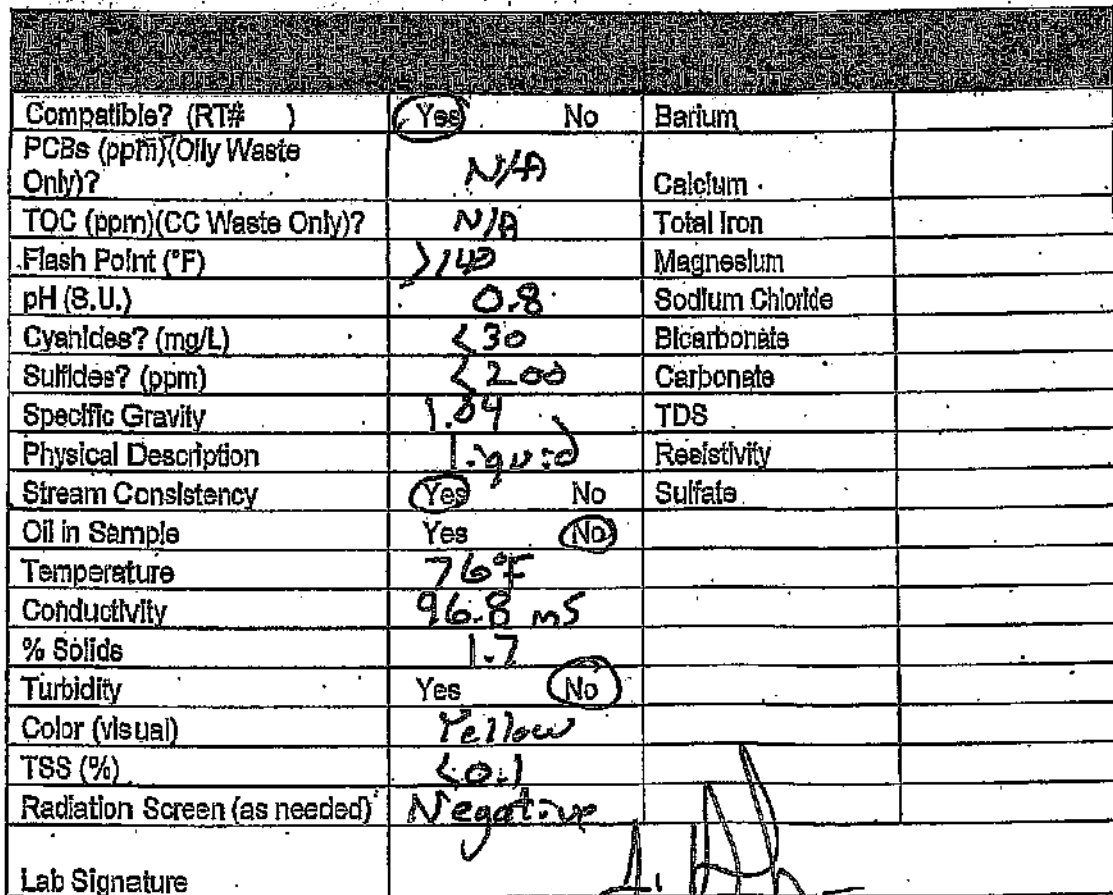 Compatible? (RT# ) Yes No Barium
PCBs (ppm)(Oily Waste
Only)? N/A Calcium
TOC (ppm)(CC Waste Only)? N/A Total Iron
Flash Point (°F) >140 Magnesium
pH (S.U.) 0.8 Sodium Chloride
Cyanides? (mg/L) <30 Bicarbonate
Sulfides? (ppm) <200 Carbonate
Specific Gravity 1.04 TDS
Physical Description Liquid Resistivity
Stream Consistency Yes No Sulfate
Oil in Sample Yes No
Temperature 76°F
Conductivity 96.8 mS
% Solids 1.7
Turbidity Yes No
Color (visual) Yellow
TSS (%) <0.1
Radiation Screen (as needed) Negative
Lab Signature